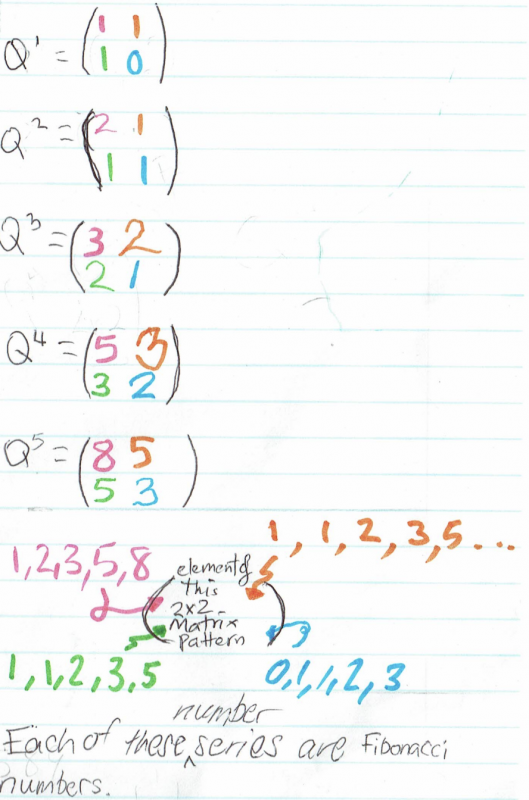 Q¹ = (1 1
1 0)
Q² = (2 1
1 1)
Q³ = (3 2
2 1)
Q⁴ = (5 3
3 2)
Q⁵ = (8 5
5 3)
1, 1, 2, 3, 5...
1,2,3,5,8
element of
this
2x2-
Matrix
pattern
1,1,2,3,5
0,1,1,2,3
number
Each of these ^ series are Fibonacci
numbers.